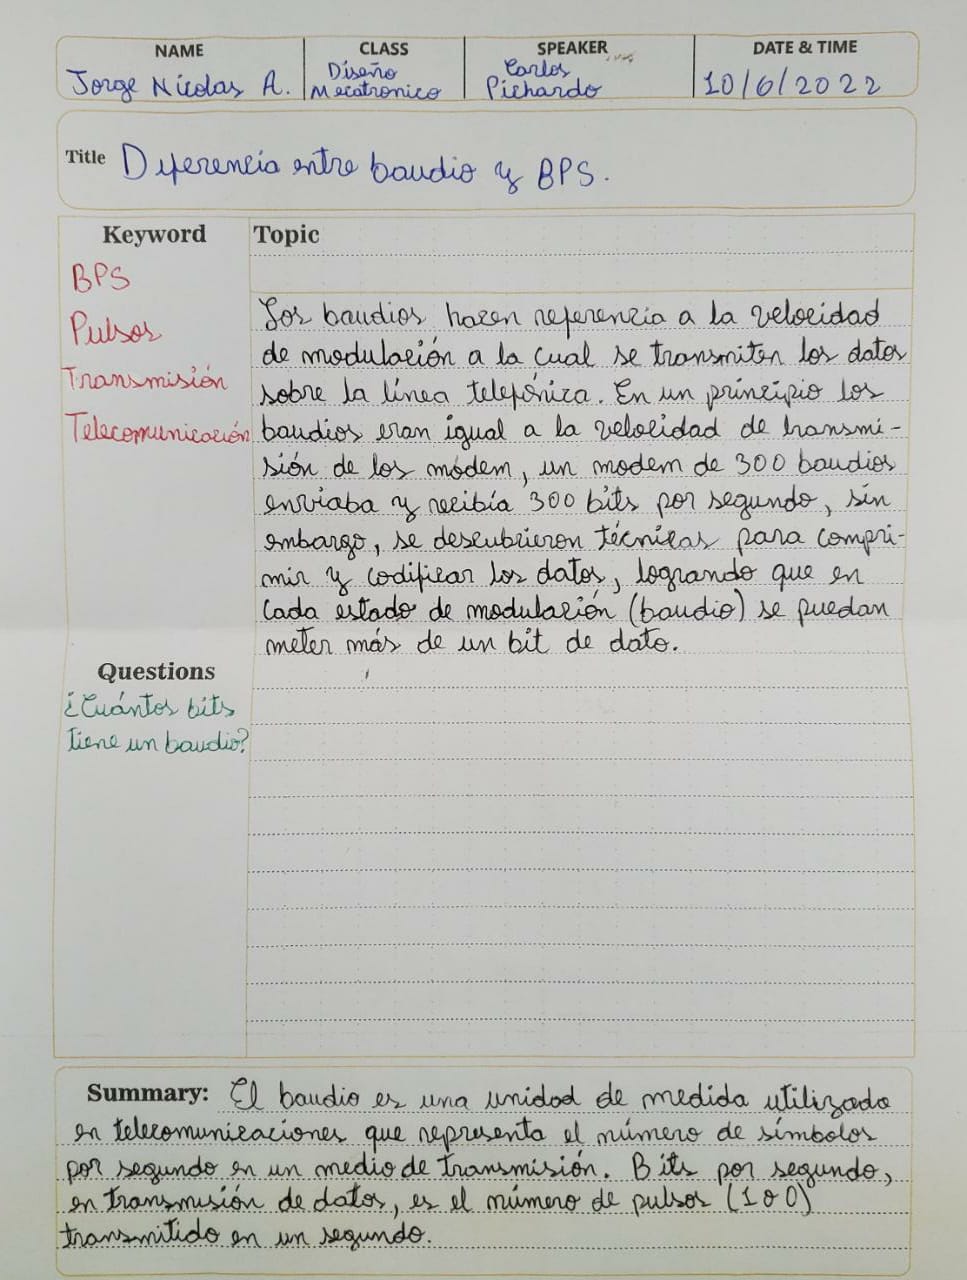 NAME CLASS SPEAKER DATE & TIME
Jorge Nícolas A. Diseño Mecatronico Carlos Pichardo 10/6/2022
Title Diferencia entre baudio y BPS.
Keyword
BPS
Pulsos
Transmisión
Telecomunicación
Topic
Los baudios hacen referencia a la velocidad
de modulación a la cual se transmiten los datos
sobre la línea telefónica. En un principio los
baudios eran igual a la velocidad de transmi-
sión de los módem, un modem de 300 baudios
enviaba y recibía 300 bits por segundo, sin
embargo, se descubrieron técnicas para compri-
mir y codificar los datos, logrando que en
cada estado de modulación (baudio) se puedan
meter más de un bit de dato.
Questions
¿Cuántos bits
tiene un baudio?
Summary: El baudio es una unidad de medida utilizada
en telecomunicaciones que representa el número de símbolos
por segundo en un medio de transmisión. Bits por segundo,
en transmisión de datos, es el número de pulsos (1 o 0)
transmitido en un segundo.